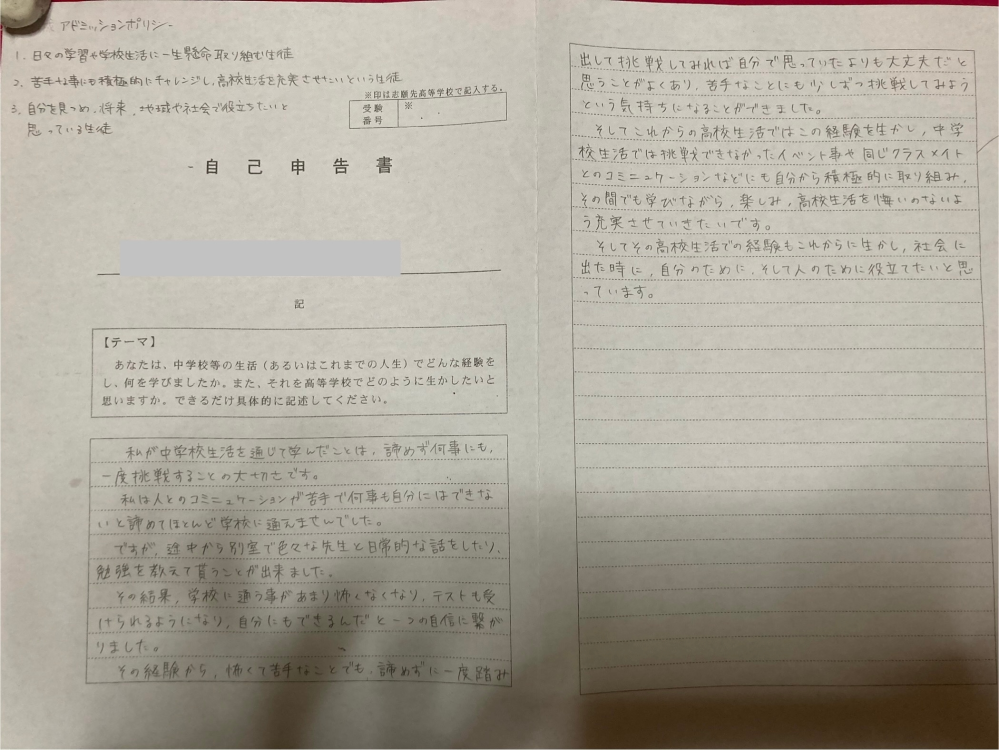 アドミッションポリシー
1. 日々の学習や学校生活に一生懸命取り組む生徒
2. 苦手な事にも積極的にチャレンジし、高校生活を充実させたいという生徒
3. 自分を見つめ、将来、地域や社会で役立ちたいと
思っている生徒
※印は志願先高等学校で記入する。
受験
番号
※
自己申告書
記
【テーマ】
あなたは、中学校等の生活（あるいはこれまでの人生）でどんな経験を
し、何を学びましたか。また、それを高等学校でどのように生かしたいと
思いますか。できるだけ具体的に記述してください。
私が中学校生活を通じて学んだことは、諦めず何事にも、
一度挑戦することの大切さです。
私は人とのコミニュケーションが苦手で何事も自分にはできな
いと諦めてほとんど学校に通えませんでした。
ですが、途中から別室で色々な先生と日常的な話をしたり、
勉強を教えて貰うことが出来ました。
その結果、学校に通う事があまり怖くなくなり、テストも受
けられるようになり、自分にもできるんだと一つの自信に繋が
りました。
その経験から、怖くて苦手なことでも、諦めずに一度踏み
出して挑戦してみれば自分で思っていたよりも大丈夫だと
思うことがよくあり、苦手なことにも少しずつ挑戦してみよう
という気持ちになることができました。
そしてこれからの高校生活ではこの経験を生かし、中学
校生活では挑戦できなかったイベント事や同じクラスメイト
とのコミニュケーションなどにも自分から積極的に取り組み、
その間でも学びながら、楽しみ、高校生活を悔いのないよ
う充実させていきたいです。
そしてその高校生活での経験もこれからに生かし、社会に
出た時に、自分のために、そして人のために役立てたいと思
っています。